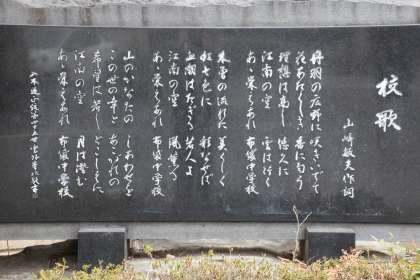 校歌
山崎敏夫作詞
丹羽の広野に咲きいでて
花あたらしき香に匂う
理想は高し悠久に
江南の空雲は行く
あゝ栄えあれ布袋中学校
木曽の流れた美しく
虹七色に彩なせば
血潮はたぎる若人よ
江南の空風薫る
あゝ栄えあれ布袋中学校
山のかなたのしあわせを
この世の幸とあこがれの
希望は若しとことわに
江南の空月は澄む
あゝ栄えあれ布袋中学校